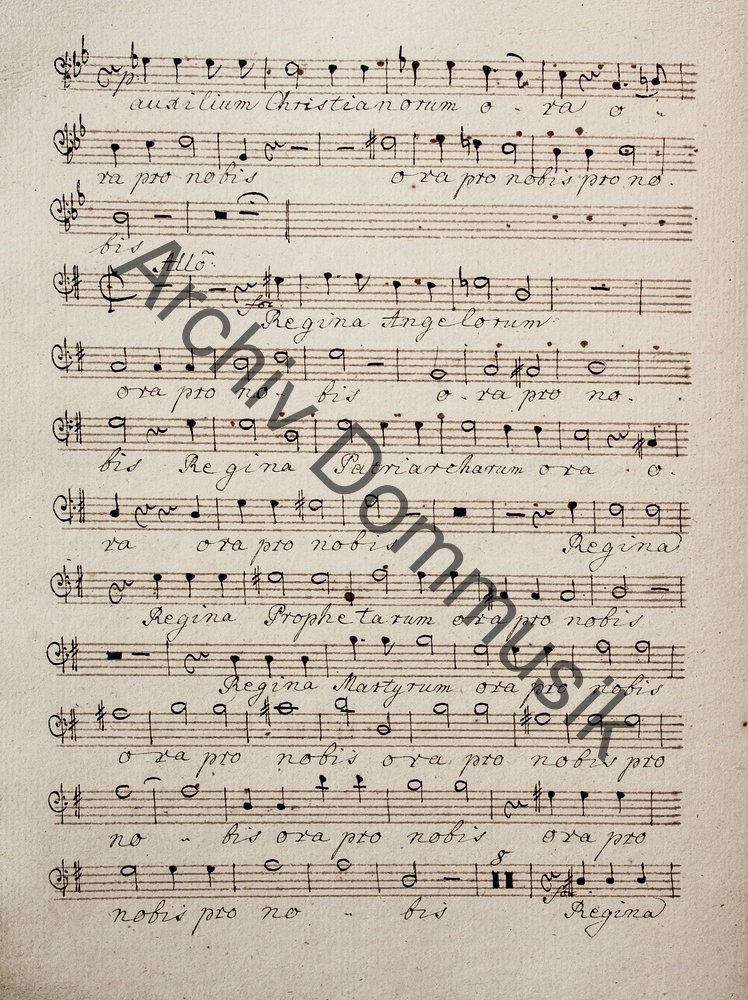 p.
auxilium Christianorum o - ra o -
ra pro nobis ora pro nobis pro no.
bis
Allo:
for.
Regina Angelorum
ora pro no - bis o - ra pro no.
bis Regina Patriarcharum ora o.
ra ora pro nobis Regina
Regina Prophetarum ora pro nobis
Regina Martyrum ora pro nobis
ora pro nobis ora pro nobis pro
no - bis ora pro nobis ora pro
8
for.
nobis pro no - bis Regina
Archiv Dommusik